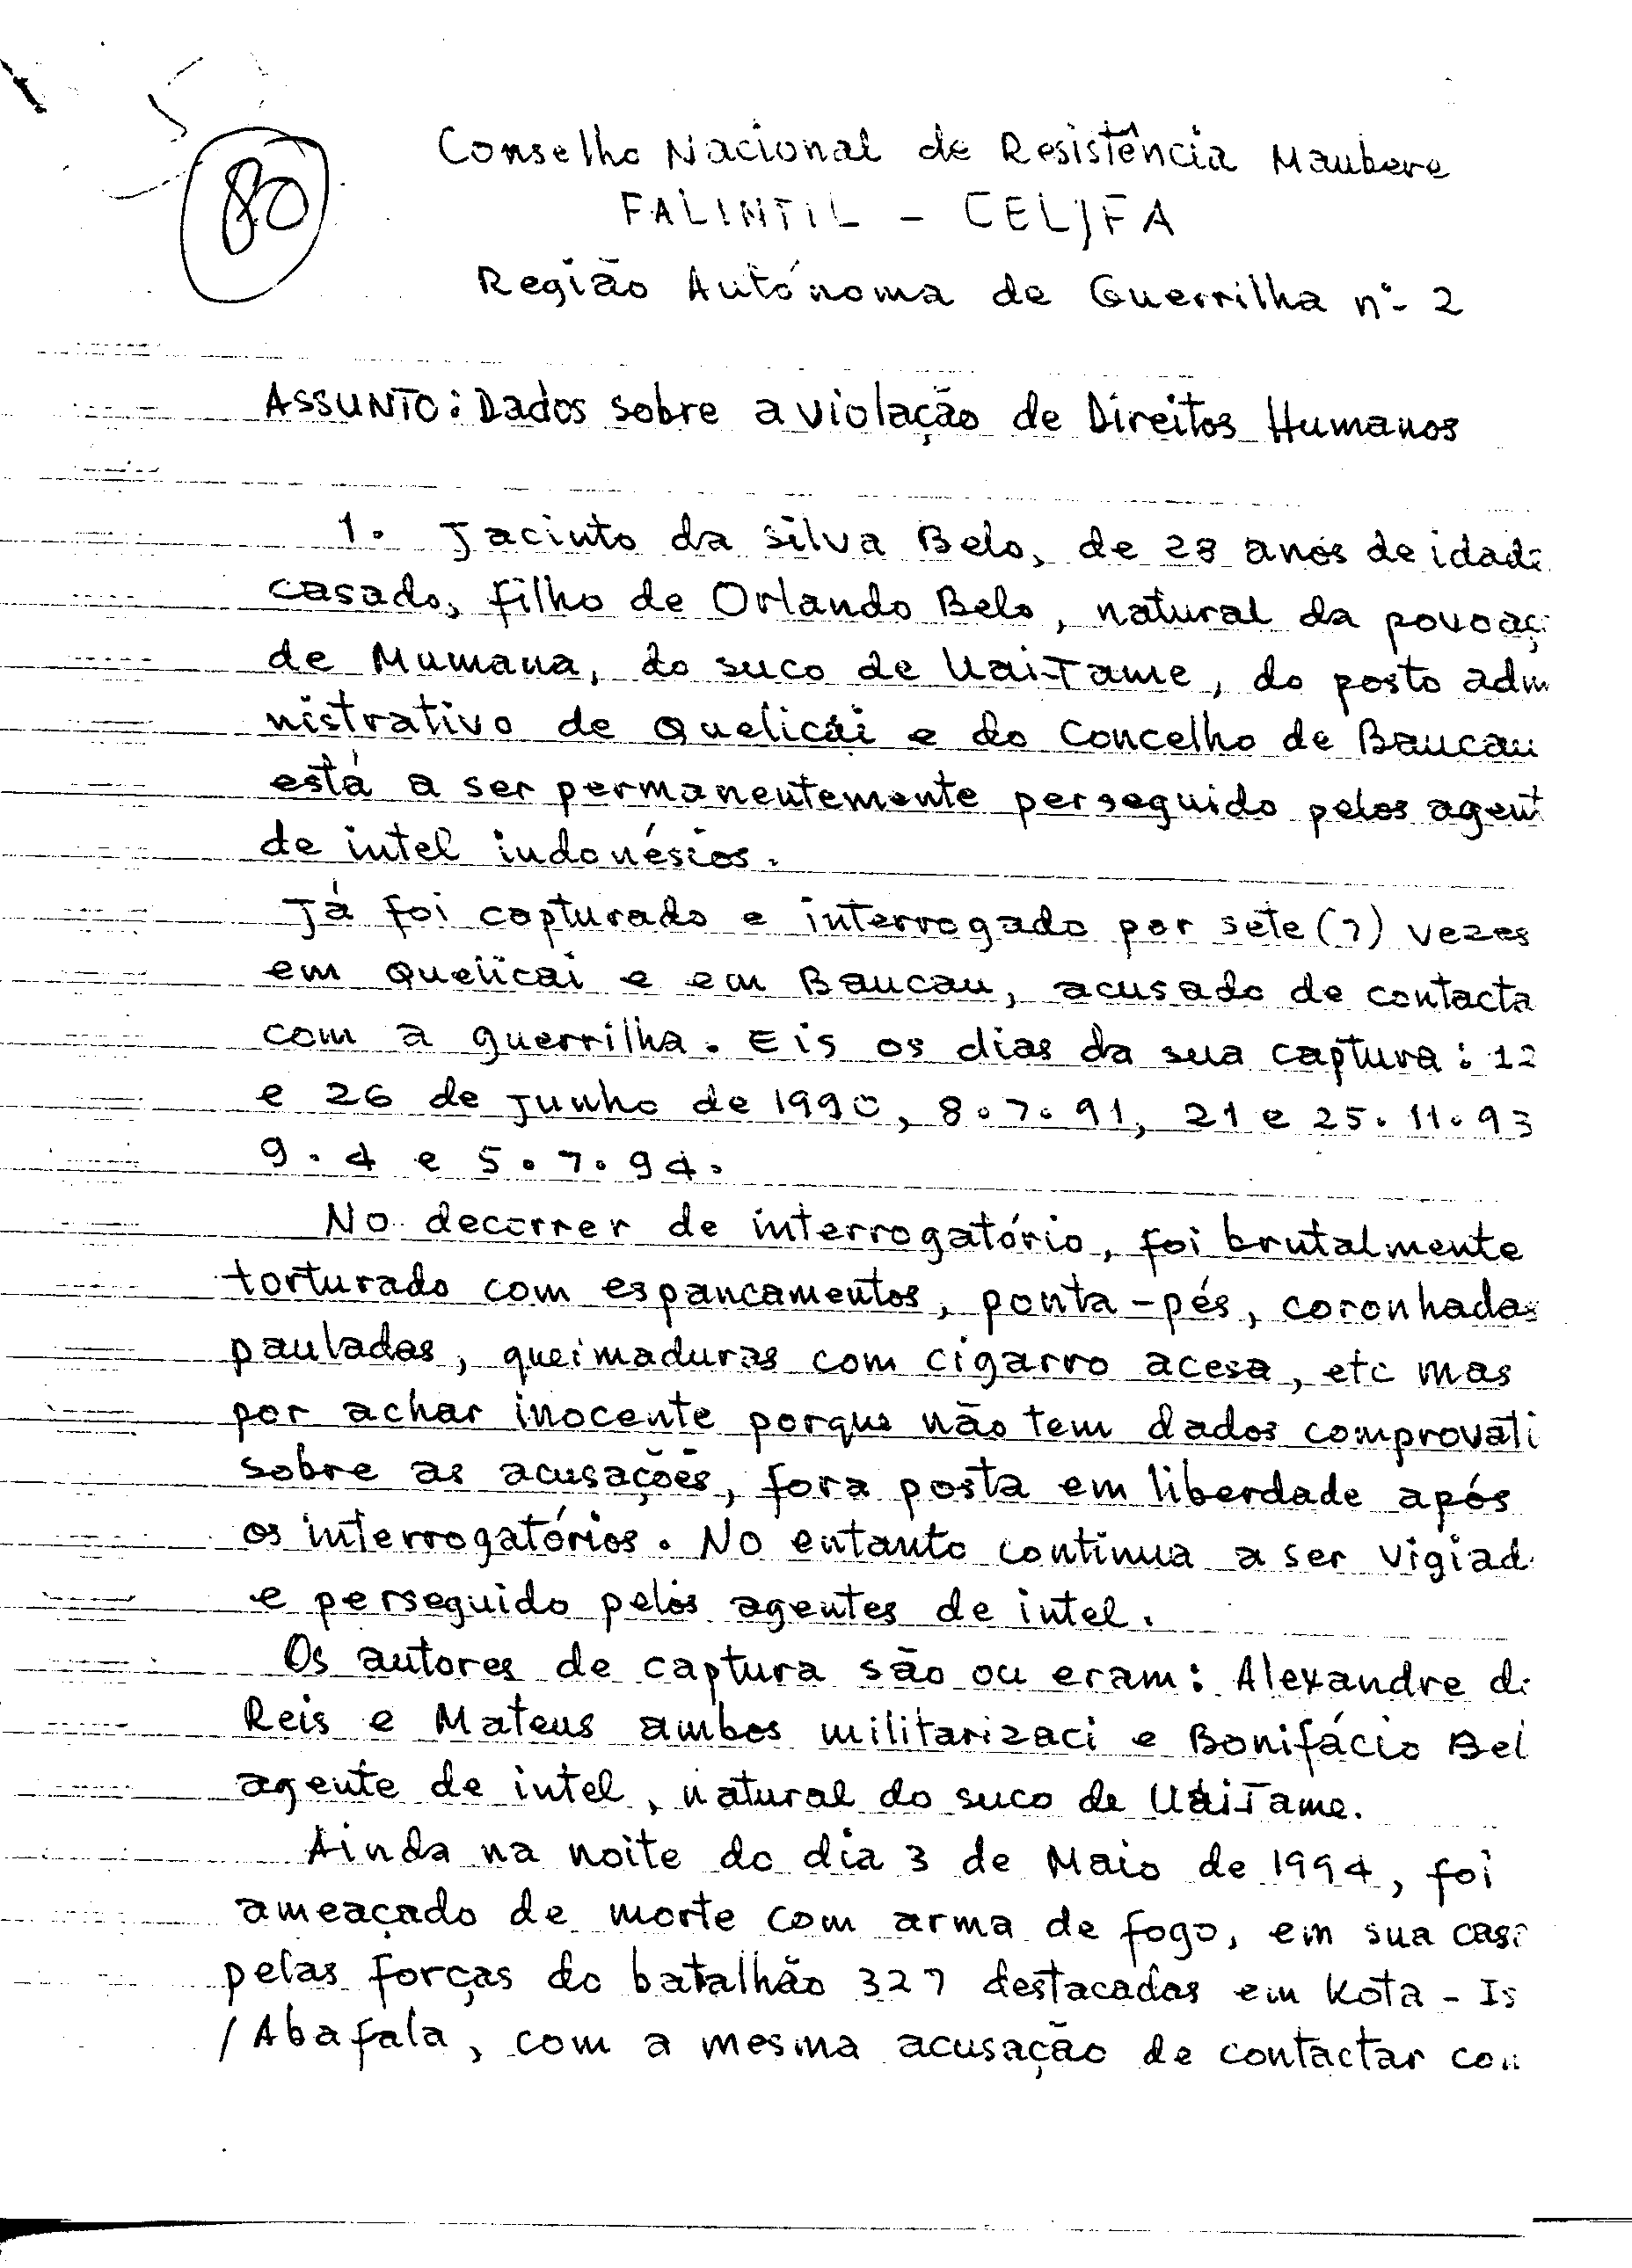 80
Conselho Nacional de Resistência Maubere
FALINTIL - CEL/FA
Região Autónoma de Guerrilha nº 2
ASSUNTO: Dados sobre a violação de Direitos Humanos
1. Jacinto da Silva Belo, de 28 anos de idade
casado, filho de Orlando Belo, natural da povoaç
de Mumana, do suco de UaiTame, do posto admi
nistrativo de Quelicai e do Concelho de Baucau
está a ser permanentemente perseguido pelos agent
de intel indonésios.
Já foi capturado e interrogado por sete (7) vezes
em Quelicai e em Baucau, acusado de contacta
com a guerrilha. Eis os dias da sua captura: 12
e 26 de Junho de 1990, 8.7.91, 21 e 25.11.93
9.4 e 5.7.94.
No decorrer de interrogatório, foi brutalmente
torturado com espancamentos, ponta-pés, coronhadas
pauladas, queimaduras com cigarro acesa, etc mas
por achar inocente porque não tem dados comprovati
sobre as acusações, fora posta em liberdade após
os interrogatórios. No entanto continua a ser vigiad
e perseguido pelos agentes de intel.
Os autores de captura são ou eram: Alexandre d
Reis e Mateus ambos militarizaci e Bonifácio Bel
agente de intel, natural do suco de UaiTame.
Ainda na noite do dia 3 de Maio de 1994, foi
ameaçado de morte com arma de fogo, em sua casa
pelas forças do batalhão 327 destacadas em Kota-Is
/Abafala, com a mesma acusação de contactar com